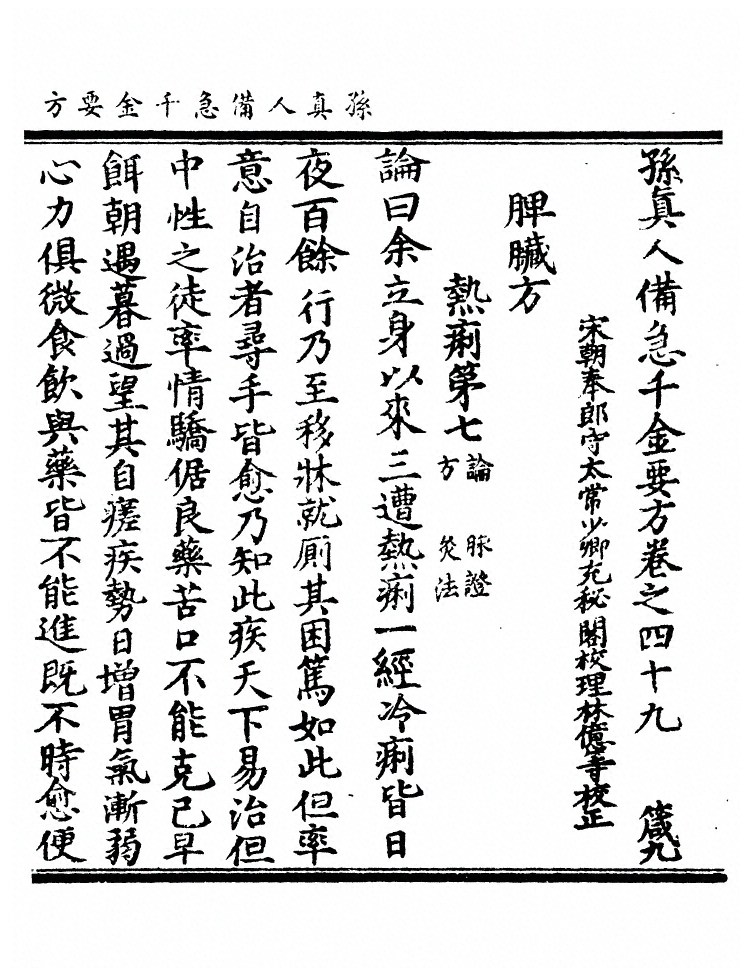 孫真人備急千金要方
孫真人備急千金要方卷之四十九　箴九
宋朝奉郎守太常少卿充秘閣校理林億等校正
脾臓方
熱痢第七 論 脉證 方 灸法
論曰余立身以來三遭熱痢一經冷痢皆日
夜百餘行乃至移牀就厠其困篤如此但率
意自治者尋手皆愈乃知此疾天下易治但
中性之徒率情驕倨良藥苦口不能克己早
餌朝遇暮過望其自瘥疾勢日增胃氣漸弱
心力俱微食飲與藥皆不能進既不時愈便